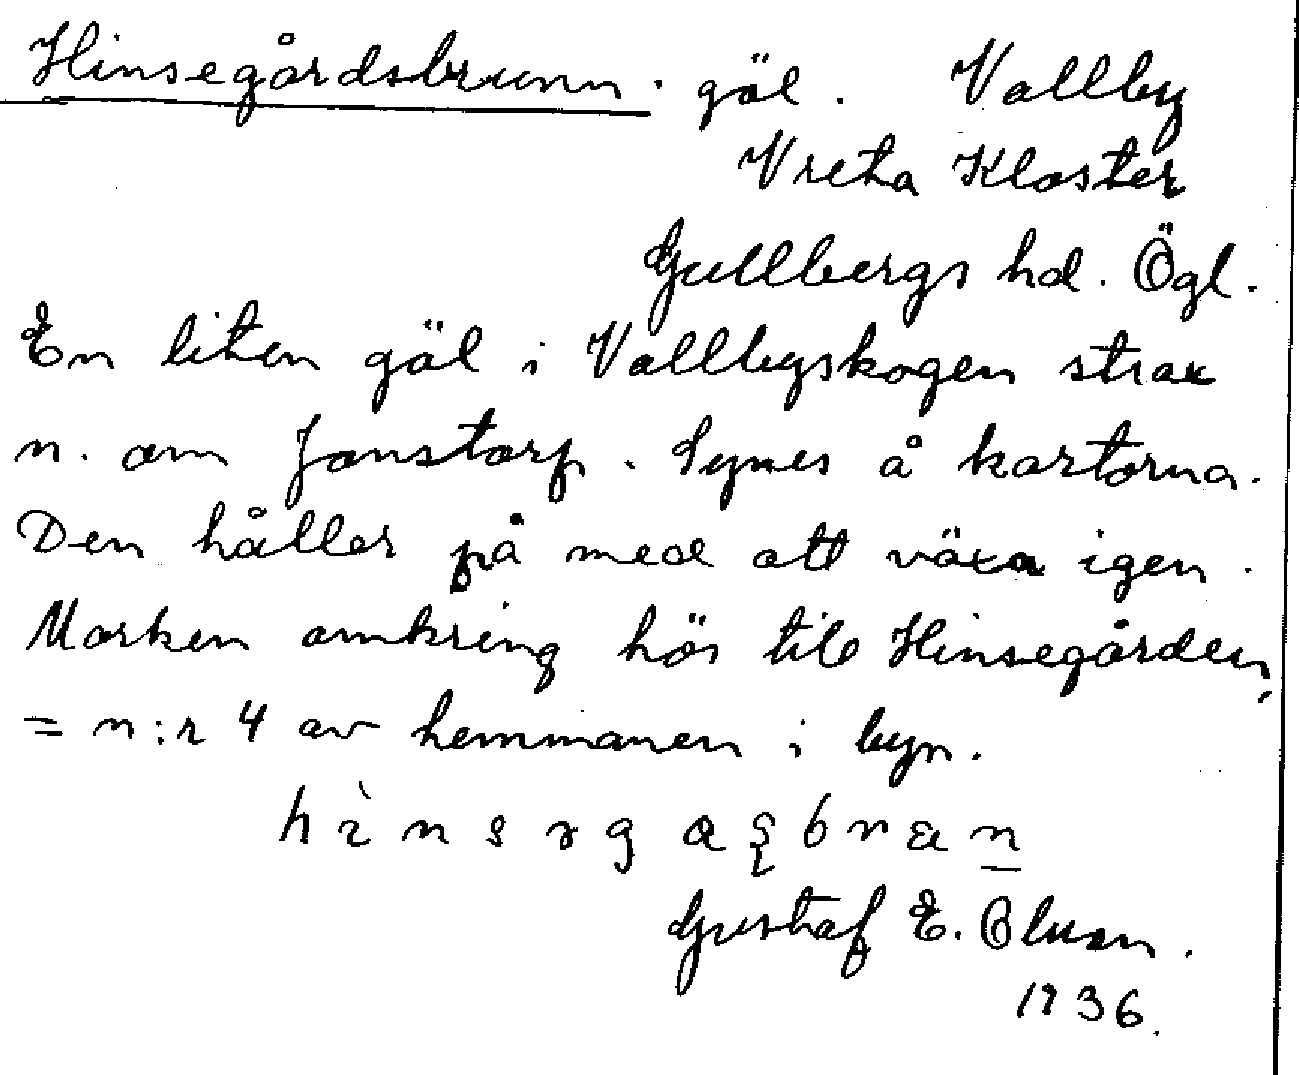 Hinsegårdsbrunn. göl. Vallby
Vreta Kloster
Gullbergs hd. Ögl.
En liten göl i Vallbyskogen strax
n. om Jonstorp. Synes å kartorna.
Den håller på med att växa igen.
Marken omkring hör till Hinsegården,
= n:r 4 av hemmanen i byn.
Gustaf E. Olsson.
1936.